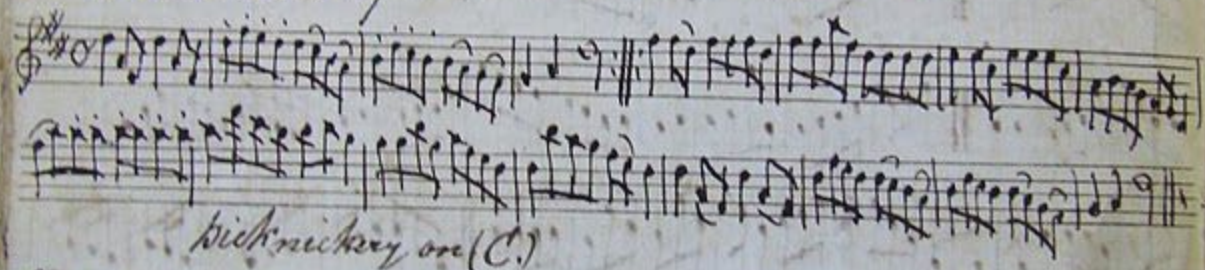 Picknickery on (C.)